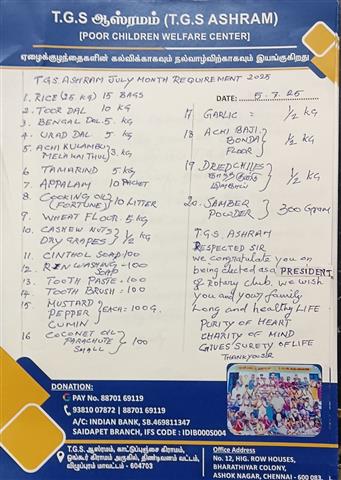 T.G.S ஆஸ்ரமம் (T.G.S ASHRAM)
[POOR CHILDREN WELFARE CENTER]
ஏழைக்குழந்தைகளின் கல்விக்காகவும் நல்வாழ்விற்காகவும் இயங்குகிறது
T.G.S ASHRAM JULY MONTH REQUIREMENT 2025
DATE: 5.7.25
1. RICE (25 KG) 15 BAGS
2. TOOR DAL 10 KG
3. BENGAL DAL 5. KG
4. URAD DAL 5 KG
5. ACHI KULAMBU
MELAKAI THUL } 3. KG
6 TAMARIND 5 KG
7. APPALAM 10 PACKET
8. COOKING OIL
(FORTUNE) } 10 LITTER
9. WHEAT FLOOR. 5 KG
10. CASHEW NUTS
DRY GRAPES } 1/2 KG
11. CINTHOL SOAP 100
12. RIN WASHING SOAP -100
13. TOOTH PASTE = 100
14. TOOTH BRUSH = 100
15 MUSTARD
PEPPER
CUMIN } EACH = 100 G.
16 COCONET OIL
PARACHUTE
SMALL } 100
17 GARLIC = 1/2 KG
18 ACHI BAJI
BONDA
FLOOR } 1/2 KG
19. DRIED CHILIES } 1/2 KG
20. SAMBER
POWDER } 300 Gram
T.G.S. ASHRAM
RESPECTED SIR
we congratulate you on
being elected as a PRESIDENT
of Rotary club. we wish
you and your family
Long and healthy LIFE
PURITY OF HEART
CHARITY OF MIND
GIVES SURETY OF LIFE
THANK YOU SIR
DONATION:
G PAY No. 88701 69119
93810 07872 | 88701 69119
A/C: INDIAN BANK, SB.469811347
SAIDAPET BRANCH, IFS CODE : IDIB000S004
T.G.S. ஆஸ்ரமம், காட்டுப்பூஞ்சை கிராமம்,
ஓங்கூர் கிராமம் அருகில், திண்டிவனம் வட்டம்,
விழுப்புரம் மாவட்டம் - 604703
Office Address
No. 12, HIG. ROW HOUSES,
BHARATHIYAR COLONY,
ASHOK NAGAR, CHENNAI - 600 083.